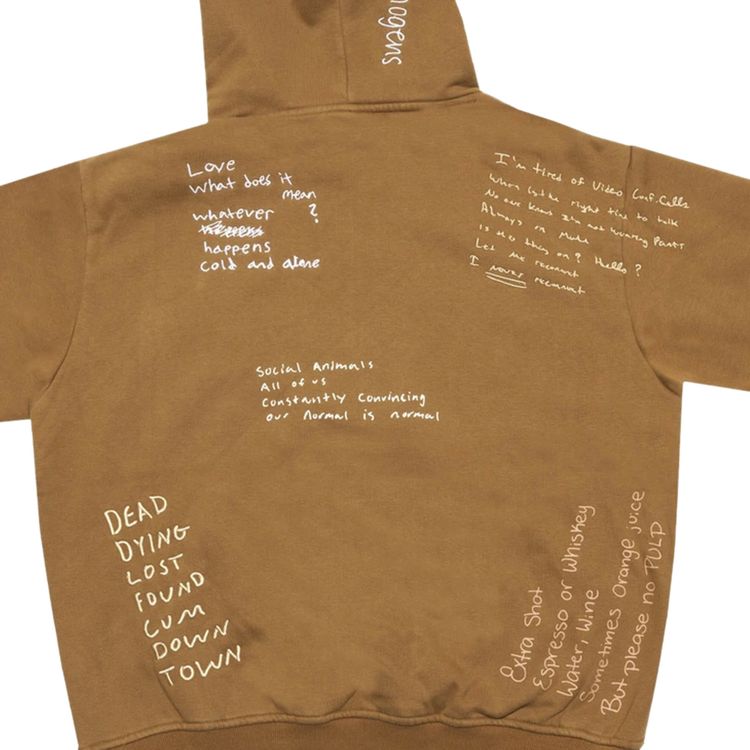 ogens
Love
What does it
mean
whatever ?
happens
cold and alone
I'm tired of Video Conf. Calls
When is the right time to talk
No one knows I'm not wearing Pants
Always on Mute
Is this thing on? Hello?
Let me reconnect
I never reconnect
Social Animals
All of us
Constantly Convincing
our normal is normal
DEAD
DYING
LOST
FOUND
CUM
DOWN
TOWN
Extra Shot
Espresso or Whiskey
Water, Wine
Sometimes Orange juice
But please no PULP